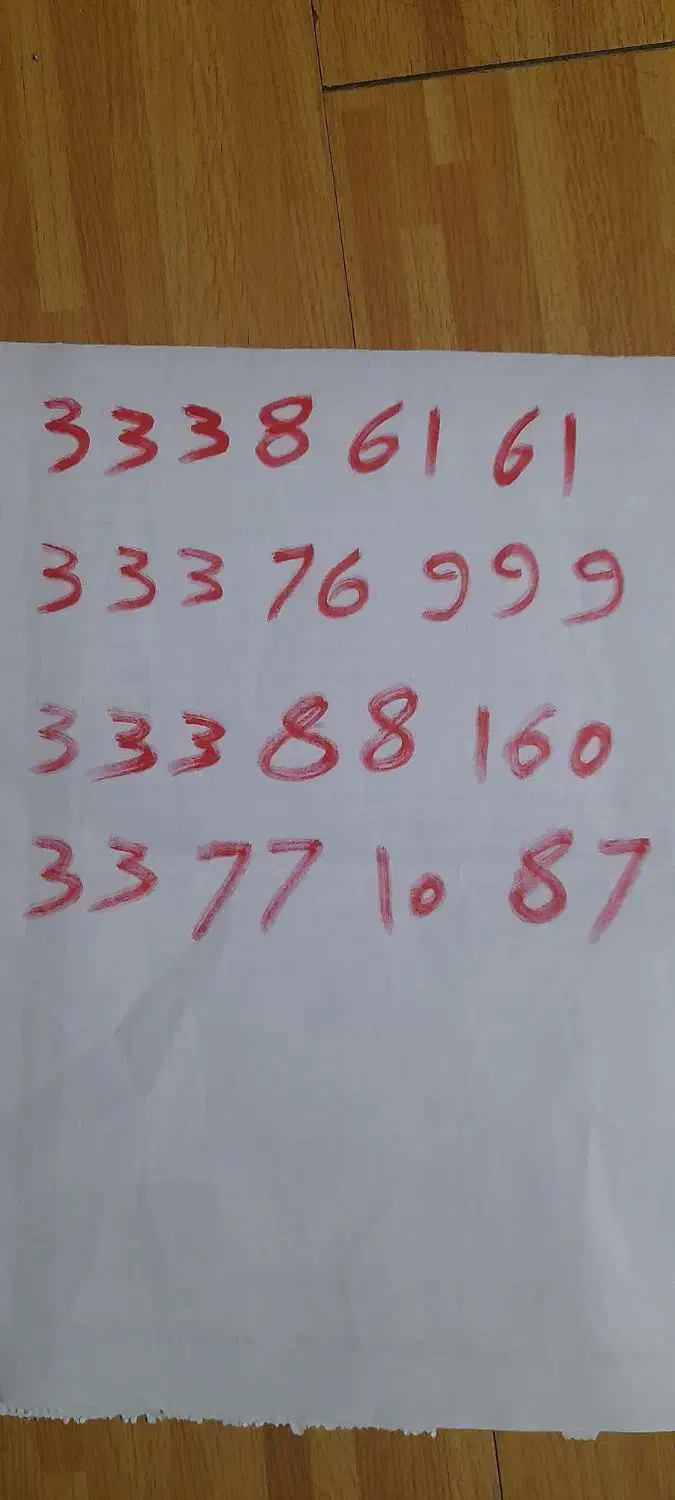 333861 61
33376 999
33388 160
3377 10 87